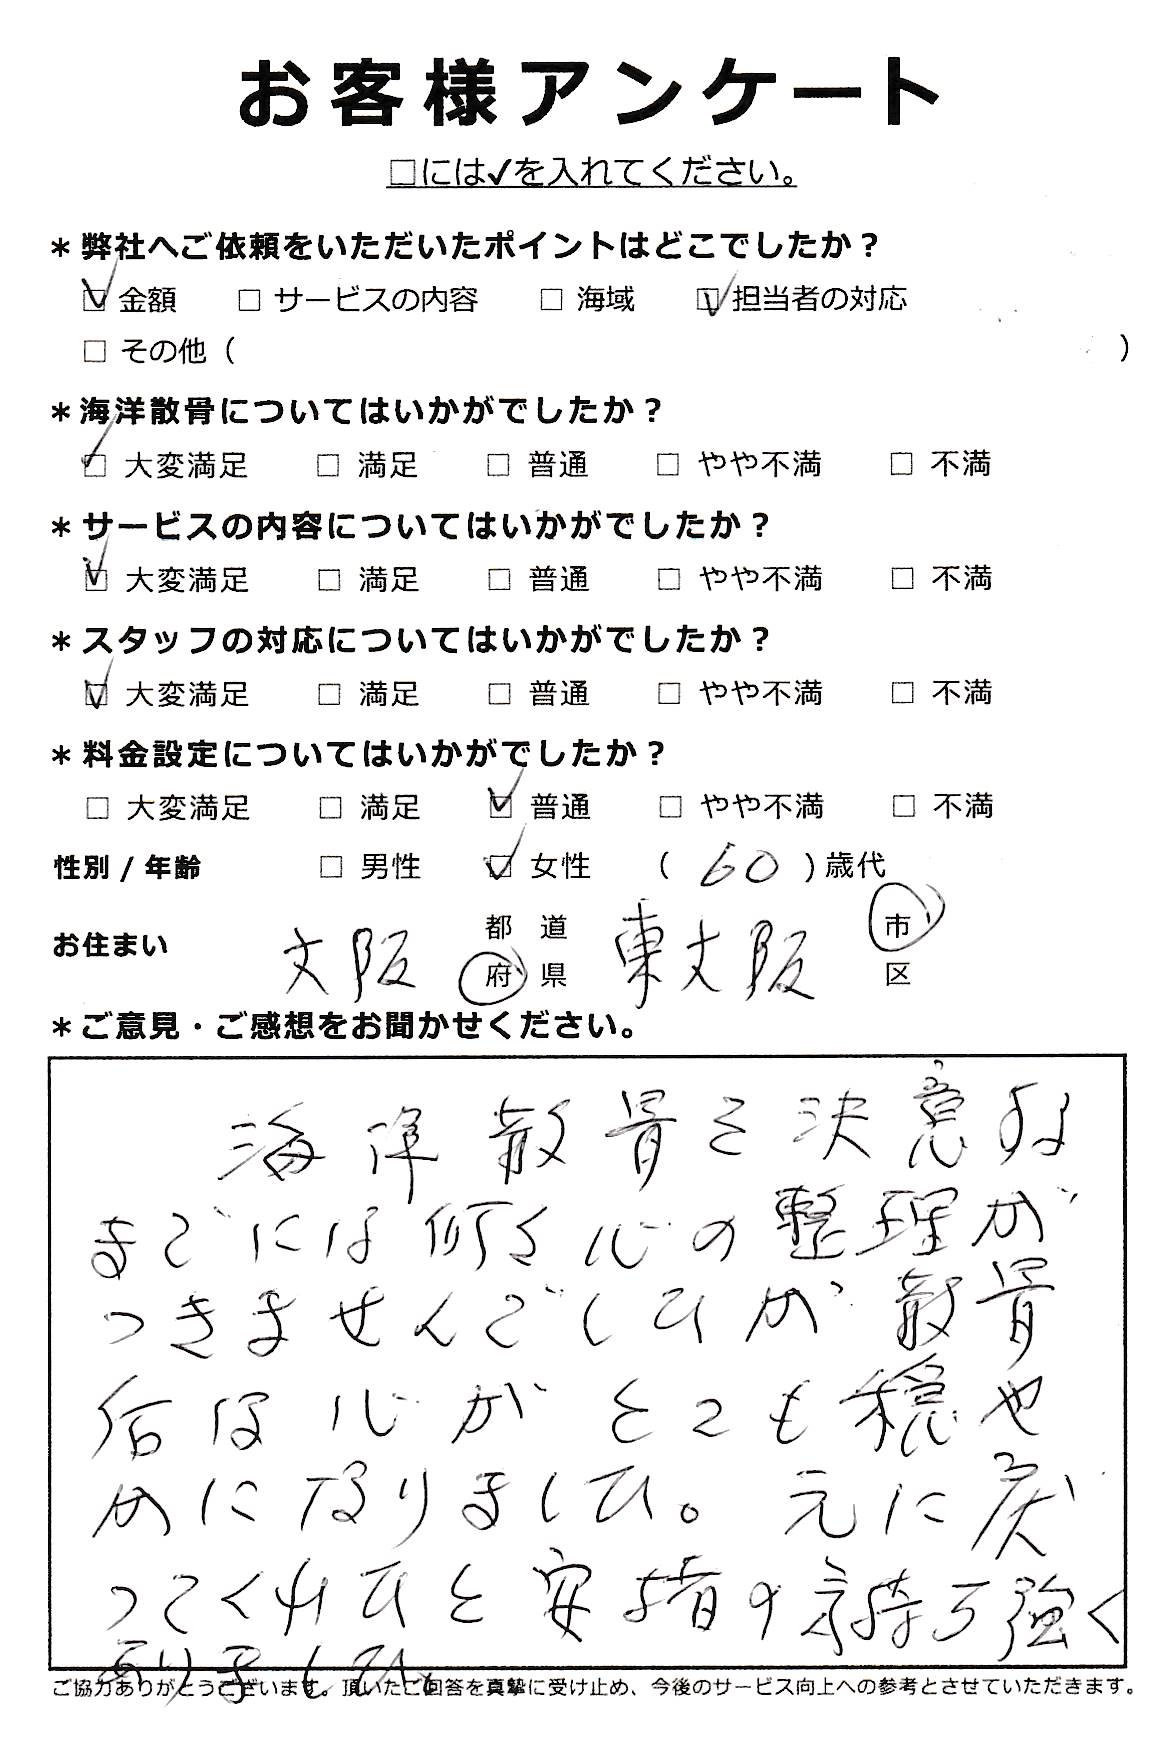 お客様アンケート
□には✓を入れてください。
＊弊社へご依頼をいただいたポイントはどこでしたか？
☑ 金額 □ サービスの内容 □ 海域 ☑ 担当者の対応
□ その他（ ）
＊海洋散骨についてはいかがでしたか？
☑ 大変満足 □ 満足 □ 普通 □ やや不満 □ 不満
＊サービスの内容についてはいかがでしたか？
☑ 大変満足 □ 満足 □ 普通 □ やや不満 □ 不満
＊スタッフの対応についてはいかがでしたか？
☑ 大変満足 □ 満足 □ 普通 □ やや不満 □ 不満
＊料金設定についてはいかがでしたか？
□ 大変満足 □ 満足 ☑ 普通 □ やや不満 □ 不満
性別 / 年齢 □ 男性 ☑ 女性 （ 60 ）歳代
お住まい 大阪 都 道 府 県 東大阪 市 区
＊ご意見・ご感想をお聞かせください。
海洋散骨を決意する
までには何度も心の整理が
つきませんでしたが 散骨
后は心がとても穏や
かになりました。元に戻
ってくれたと安堵の気持ち強く
ありました。
ご協力ありがとうございます。頂いたご回答を真摯に受け止め、今後のサービス向上への参考とさせていただきます。